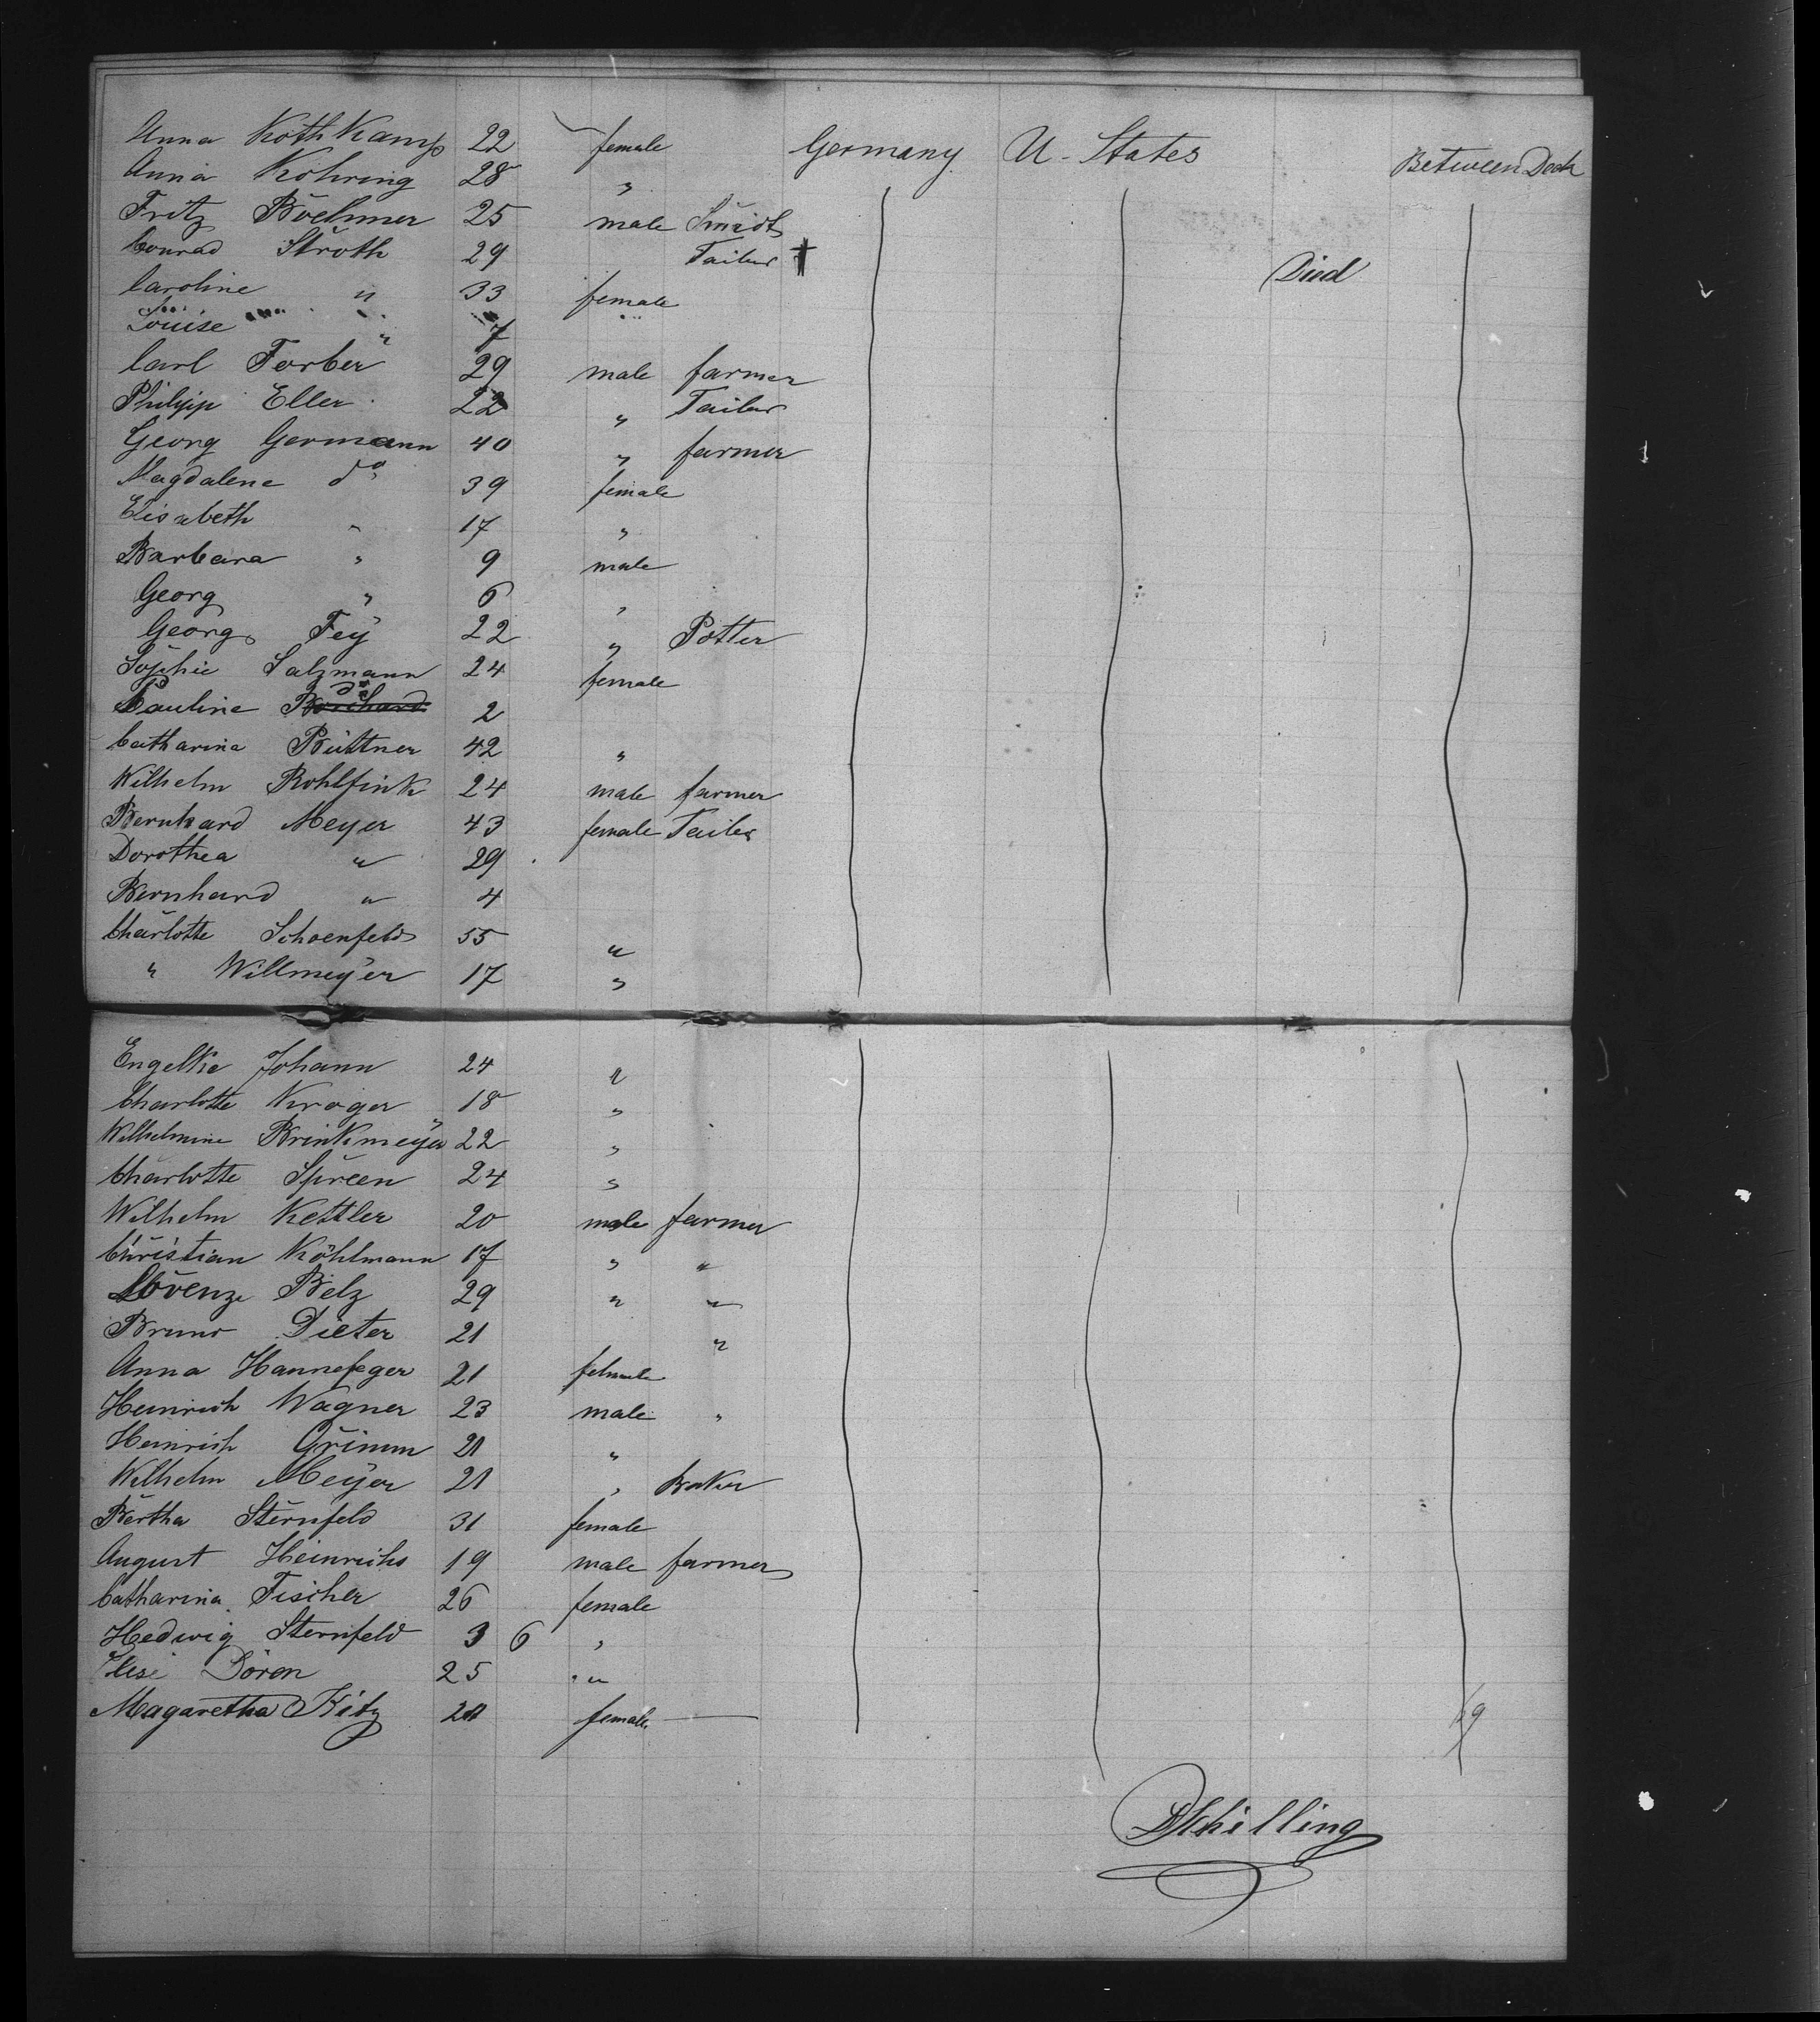 Anna KothKamp 22 female Germany U. States Between Deck
Anna Kohring 28 "
Fritz Böehmer 25 male Smidt
Conrad Stroth 29 Tailor † Died
Caroline " 33 female
Louise " 7
Carl Forber 29 male farmer
Philipp Eller 22 " Tailor
Georg Germann 40 " farmer
Magdalene do 39 female
Elisabeth " 17 "
Barbara " 9 male
Georg " 6 "
Georg Fey 22 " Potter
Sophie Salzmann 24 female
Pauline do 2
Catharina Büttner 42 "
Wilhelm Rohlfink 24 male farmer
Bernhard Meyer 43 female Tailor
Dorothea " 29
Bernhard " 4
Charlotte Schoenfeld 55 "
" Willmeyer 17 "
Engelke Johann 24 "
Charlotte Kroger 18 "
Wilhelmine Brinkmeyer 22 "
Charlotte Spreen 24 "
Wilhelm Kettler 20 male farmer
Christian Köhlmann 17 " "
Lorenz Belz 29 " "
Bruno Dieter 21 "
Anna Hannefeger 21 female
Heinrich Wagner 23 male "
Heinrich Grimm 21 "
Wilhelm Meyer 21 " Baker
Bertha Sternfeld 31 female
August Heinrichs 19 male farmer
Catharina Fischer 26 female
Hedwig Sternfeld 3 6 "
Elise Dören 25 "
Magaretha Kitz 20 female
DSchilling